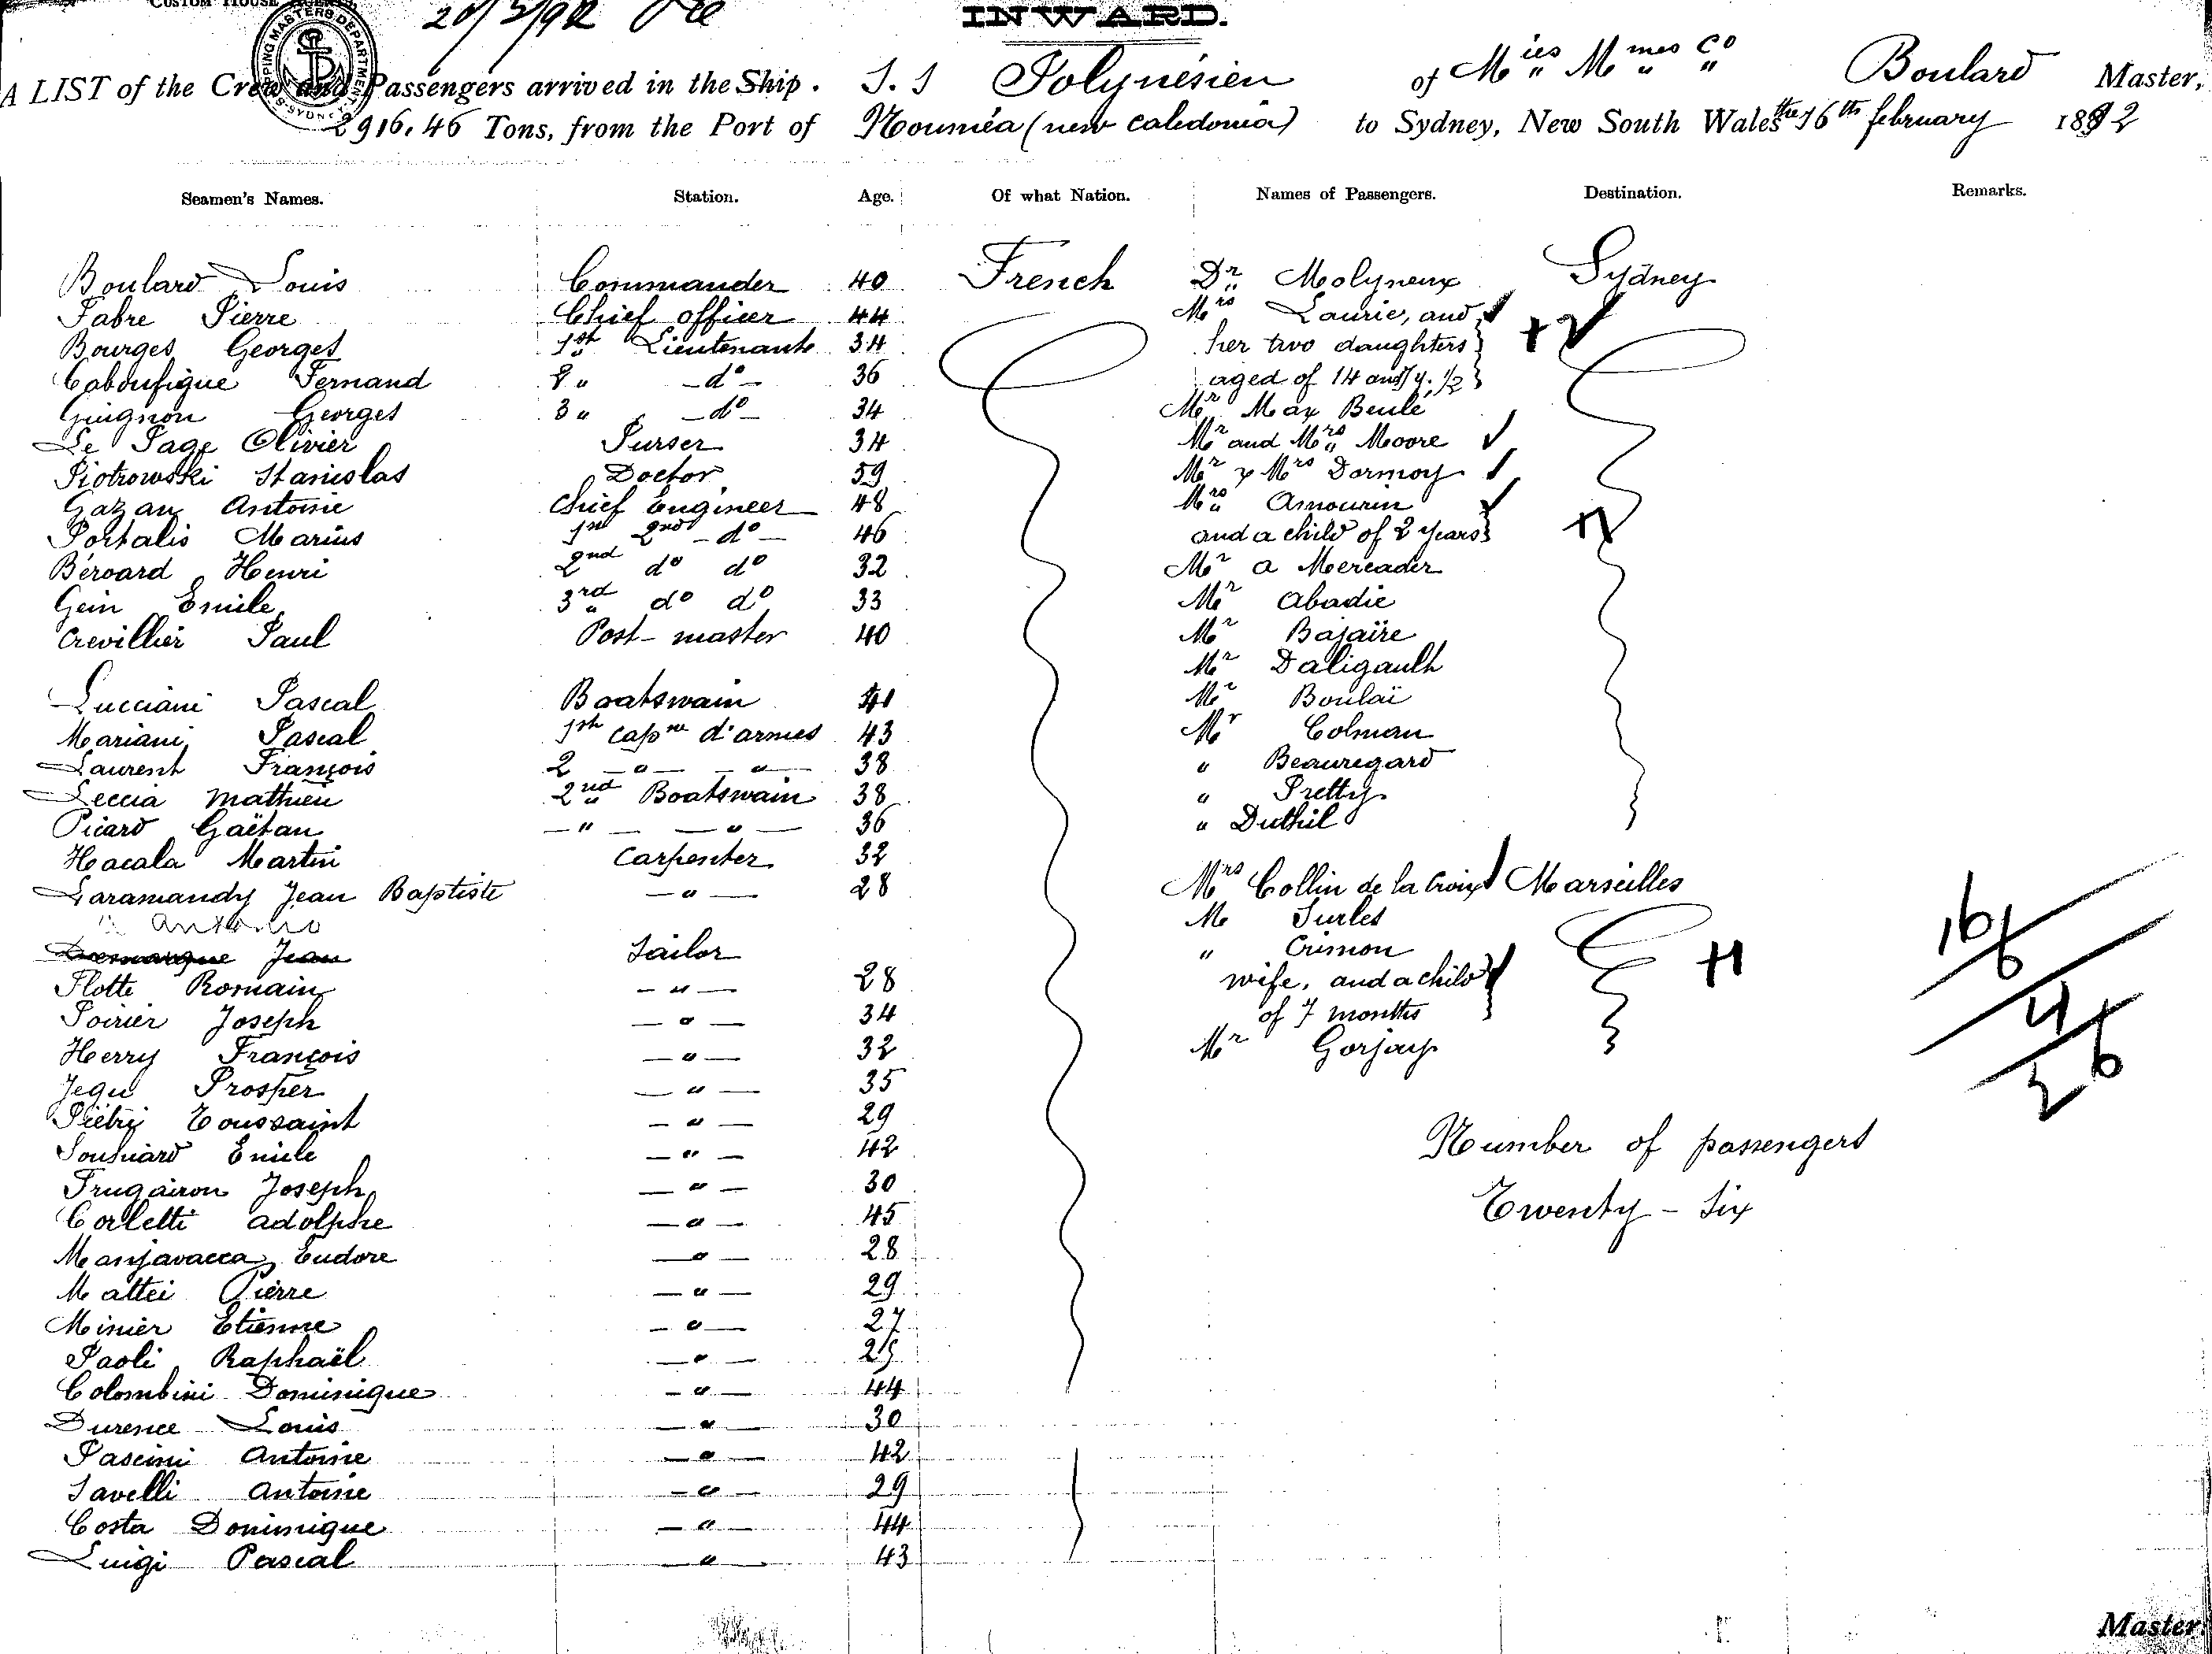 CUSTOM HOUSE
INWARD.
A LIST of the Crew and Passengers arrived in the Ship. S. S Polynésien of Mies Mmes Co Boulard Master,
2916,46 Tons, from the Port of Nouméa (new Caledonia) to Sydney, New South Wales the 16th february 1892
Seamen's Names. Station. Age. Of what Nation. Names of Passengers. Destination. Remarks.
Boulard Louis Commander 40 French Dr Molyneux Sydney
Fabre Pierre Chief officer 44 Mrs Laurie, and
Bourges Georges 1st Lieutenant 34 her two daughters
Caboufigue Fernand 2 " - do - 36 aged of 14 and 4. 1/2
Guignon Georges 3 " - do - 34 Mr Max Beulé
Le Page Olivier Purser 34 Mr and Mrs Moore
Piotrowski Stanislas Doctor 59 Mr & Mrs Dormoy
Gazan Antoine Chief Engineer 48 Mrs Amourin
Portalis Marius 1st 2nd - do - 46 and a child of 2 years
Béroard Henri 2nd do do 32 Mr A Mercader
Gein Emile 3rd do do 33 Mr Abadie
Crevillier Paul Post-master 40 Mr Bajaïre
Mr Daligault
Lucciani Pascal Boatswain 41 Mr Boulaï
Mariani Pascal 1st capne d'armes 43 Mr Colman
Laurent François 2 - " - - " - 38 " Beauregard
Leccia Mathieu 2nd Boatswain 38 " Pretty
Picard Gaëtan - " - - " - 36 " Duthil
Hacala Martin Carpenter 32
Laramandy Jean Baptiste - " - 28 Mrs Collin de la Croix Marseilles
Antonio M Surles
Jean Sailor " Crimon
Flotte Romain - " - 28 wife, and a child
Poirier Joseph - " - 34 of 7 months
Herry François - " - 32 Mr Gorjay
Jegu Prosper - " - 35
Piétri Toussaint - " - 29
Souhiard Emile - " - 42 Number of passengers
Frugairon Joseph - " - 30 Twenty - Six
Corletti Adolphe - " - 45
Manjavacca Eudore - " - 28
Mattei Pierre - " - 29
Minier Etienne - " - 27
Paoli Raphaël - " - 25
Colombini Dominique - " - 44
Durence Louis - " - 30
Pascini Antoine - " - 42
Savelli Antoine - " - 29
Costa Dominique - " - 44
Luigi Pascal - " - 43
Master